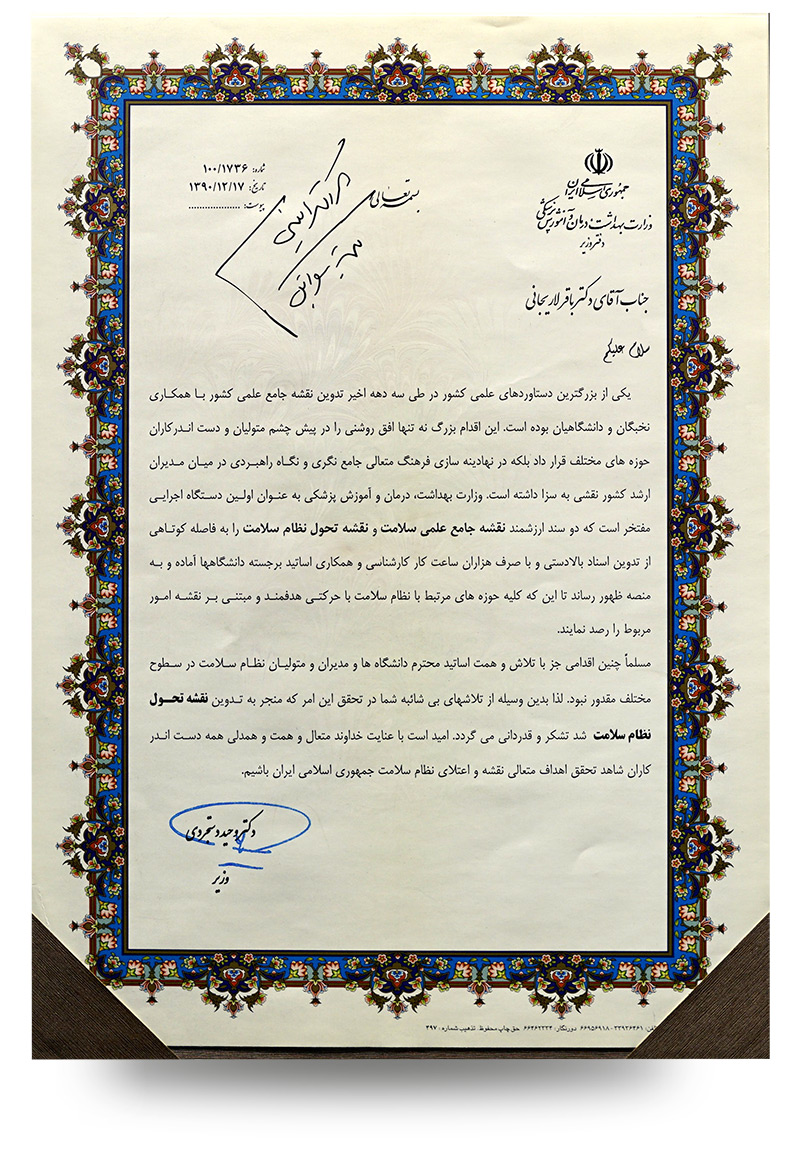 جمهوری اسلامی ایران
وزارت بهداشت، درمان و آموزش پزشکی
دفتر وزیر
بسمه تعالی
شماره: ۱۰۰/۱۷۳۶
تاریخ: ۱۳۹۰/۱۲/۱۷
پیوست: ....................
جناب آقای دکتر باقر لاریجانی
سلام علیکم
یکی از بزرگترین دستاوردهای علمی کشور در طی سه دهه اخیر تدوین نقشه جامع علمی کشور با همکاری
نخبگان و دانشگاهیان بوده است. این اقدام بزرگ نه تنها افق روشنی را در پیش چشم متولیان و دست اندرکاران
حوزه های مختلف قرار داد بلکه در نهادینه سازی فرهنگ متعالی جامع نگری و نگاه راهبردی در میان مدیران
ارشد کشور نقشی به سزا داشته است. وزارت بهداشت، درمان و آموزش پزشکی به عنوان اولین دستگاه اجرایی
مفتخر است که دو سند ارزشمند نقشه جامع علمی سلامت و نقشه تحول نظام سلامت را به فاصله کوتاهی
از تدوین اسناد بالادستی و با صرف هزاران ساعت کار کارشناسی و همکاری اساتید برجسته دانشگاهها آماده و به
منصه ظهور رساند تا این که کلیه حوزه های مرتبط با نظام سلامت با حرکتی هدفمند و مبتنی بر نقشه امور
مربوط را رصد نمایند.
مسلماً چنین اقدامی جز با تلاش و همت اساتید محترم دانشگاه ها و مدیران و متولیان نظام سلامت در سطوح
مختلف مقدور نبود. لذا بدین وسیله از تلاشهای بی شائبه شما در تحقق این امر که منجر به تدوین نقشه تحول
نظام سلامت شد تشکر و قدردانی می گردد. امید است با عنایت خداوند متعال و همت و همدلی همه دست اندر
کاران شاهد تحقق اهداف متعالی نقشه و اعتلای نظام سلامت جمهوری اسلامی ایران باشیم.
دکتر وحید دستجردی
وزیر
تلفن: ۳۳۹۲۶۴۶۱ - ۶۶۹۵۶۹۱۸ دورنگار: ۶۶۴۶۲۲۲۴ حق چاپ محفوظ. تذهیب شماره: ۴۹۷